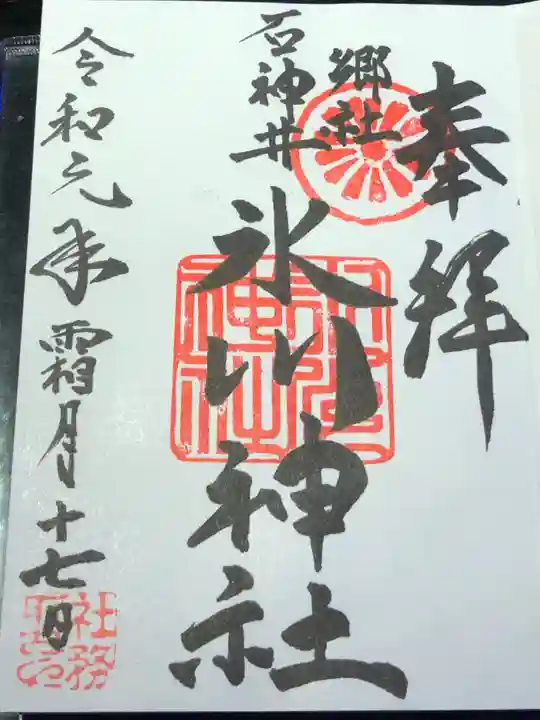 奉拝
郷社
石神井
氷川神社
令和元年霜月十七日
氷川神社
社務